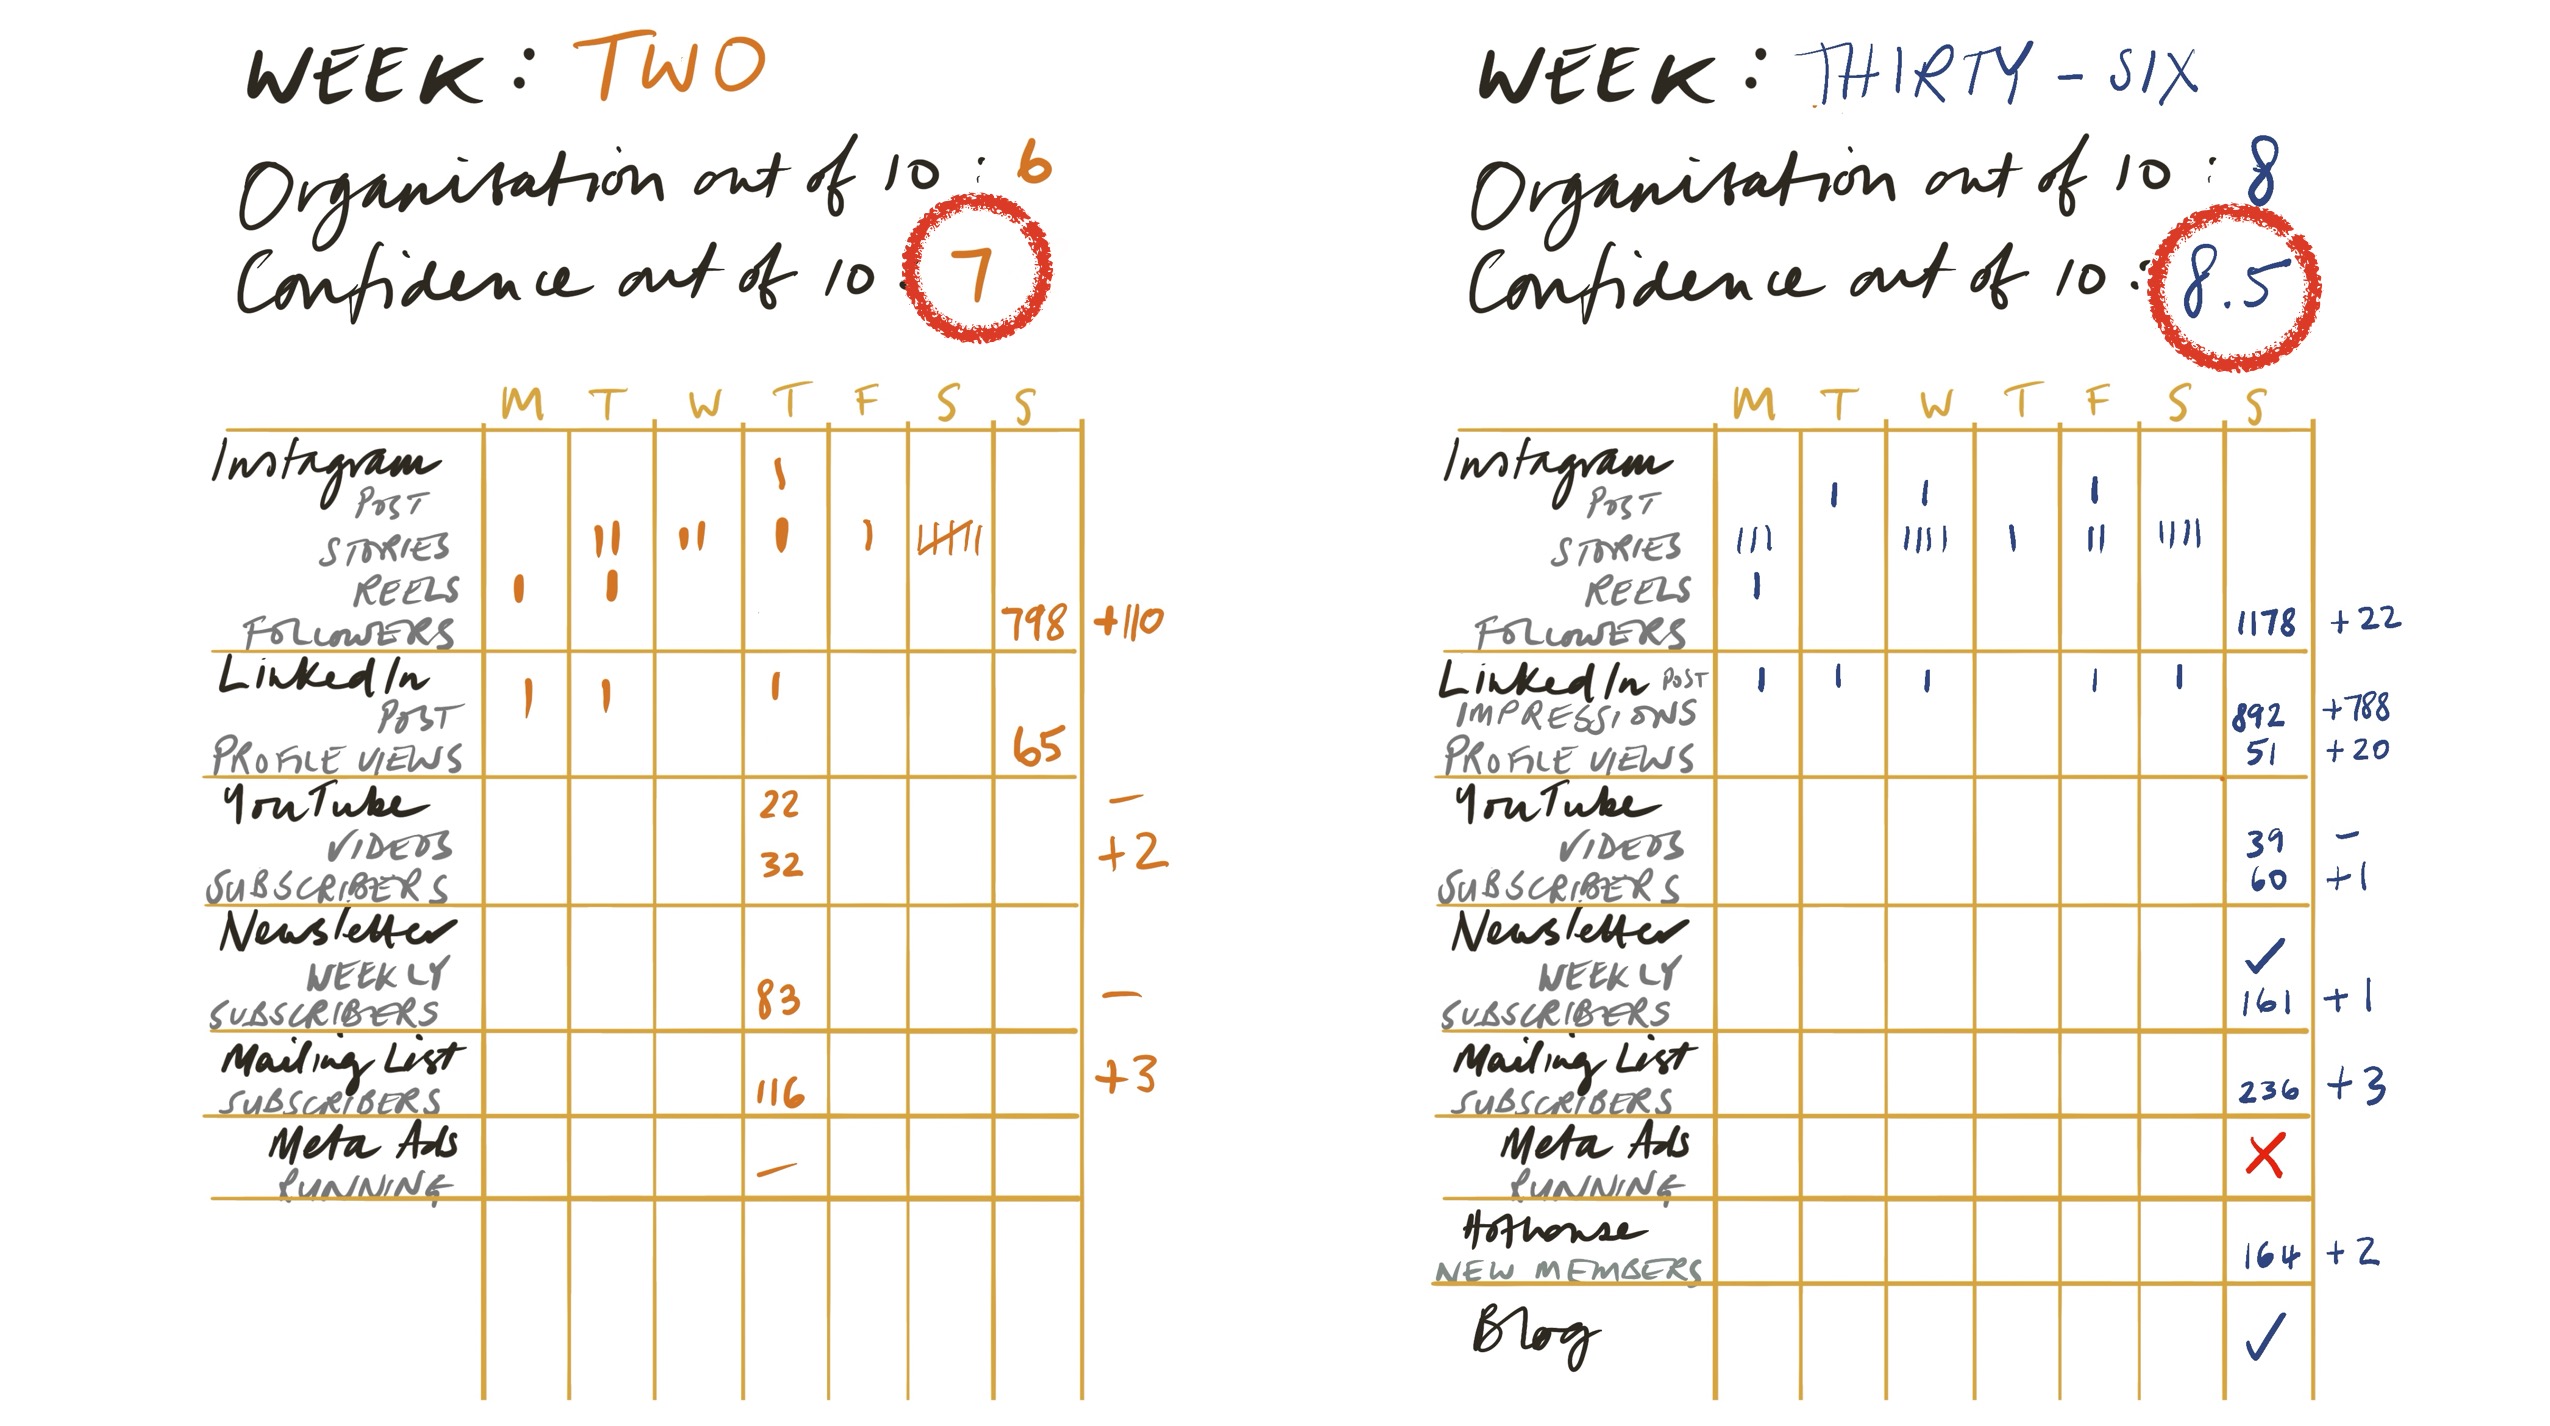 WEEK: TWO
Organisation out of 10: 6
Confidence out of 10: 7
M T W T F S S
Instagram
POST
STORIES
REELS
FOLLOWERS 798 +110
LinkedIn
POST
PROFILE VIEWS 65
YouTube 22 –
VIDEOS 32 +2
SUBSCRIBERS
Newsletter
WEEKLY
SUBSCRIBERS 83 –
Mailing List
SUBSCRIBERS 116 +3
Meta Ads
RUNNING –
WEEK: THIRTY-SIX
Organisation out of 10: 8
Confidence out of 10: 8.5
M T W T F S S
Instagram
POST
STORIES
REELS
FOLLOWERS 1178 +22
LinkedIn POST
IMPRESSIONS 892 +788
PROFILE VIEWS 51 +20
YouTube
VIDEOS 39 –
SUBSCRIBERS 60 +1
Newsletter
WEEKLY ✓
SUBSCRIBERS 161 +1
Mailing List
SUBSCRIBERS 236 +3
Meta Ads
RUNNING ✗
Hothouse
NEW MEMBERS 164 +2
Blog ✓